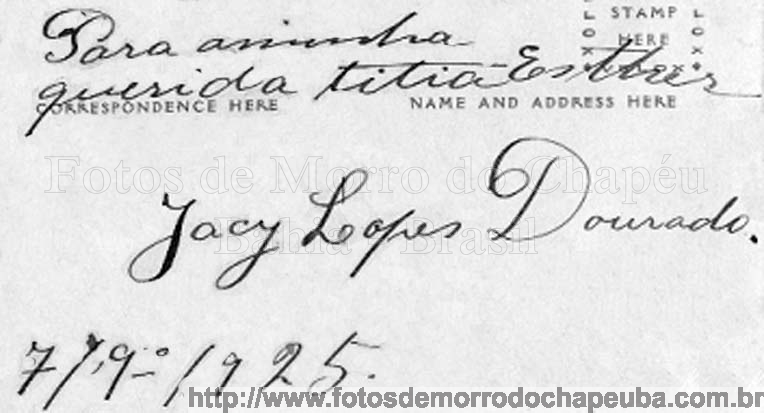 STAMP
HERE
Para aminha
querida titia Esther
CORRESPONDENCE HERE
NAME AND ADDRESS HERE
Fotos de Morro do Chapéu
Bahia Brasil
Jacy Lopes Dourado.
7/9º/1925.
http://www.fotosdemorrodochapeuba.com.br